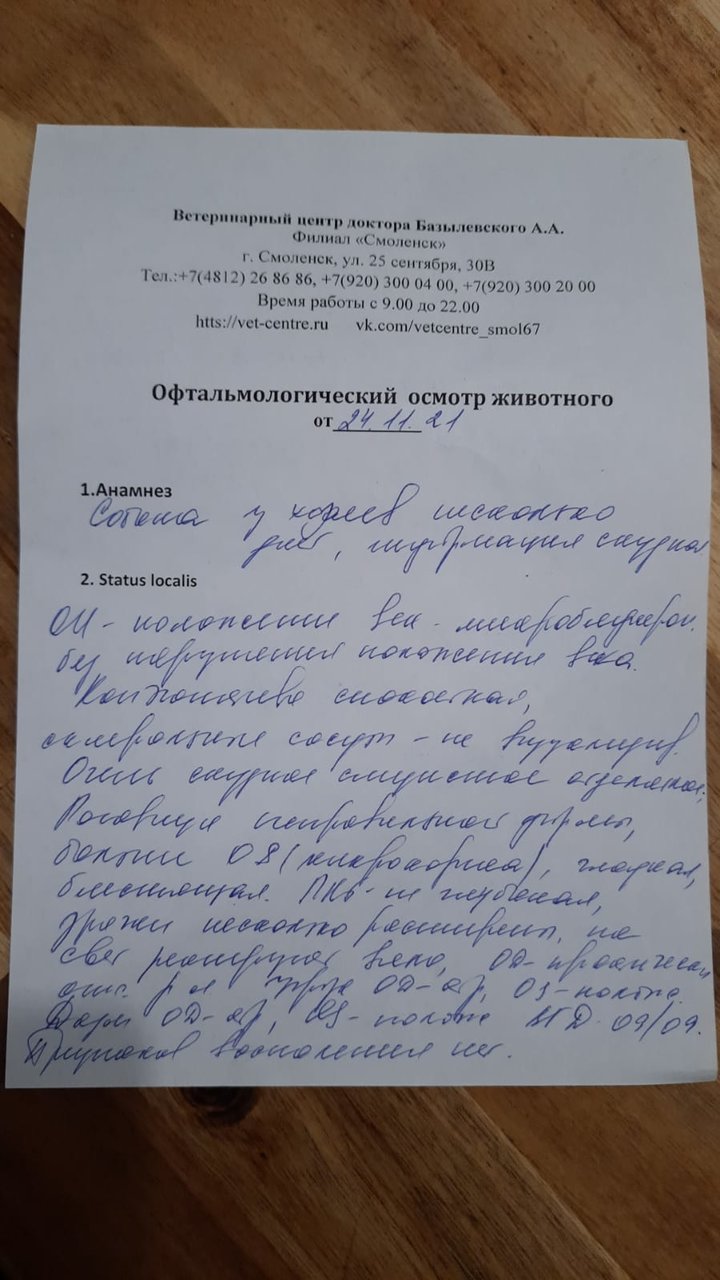 Ветеринарный центр доктора Базылевского А.А.
Филиал «Смоленск»
г. Смоленск, ул. 25 сентября, 30В
Тел.:+7(4812) 26 86 86, +7(920) 300 04 00, +7(920) 300 20 00
Время работы с 9.00 до 22.00
htts://vet-centre.ru vk.com/vetcentre_smol67
Офтальмологический осмотр животного
от 24.11.21
1.Анамнез
Собака у хозяев несколько
дней, информация скудная
2. Status localis
ОИ - положение век - микроблефарон.
без нарушения положения века.
Конъюнктива спокойная,
склеральные сосуды - не визуализир.
Очень скудное слизистое отделяемое.
Роговица неправильной формы,
больше OS (микрокорнеа), гладкая,
блестящая. ПК - не глубокая,
зрачки несколько расширены, на
свет реагируют вяло, ОД - практически
отс. р-я ОД - отр, OS - полож.
ОД - отр, OS - полож ВГД 09/09.
Признаков воспаления нет.